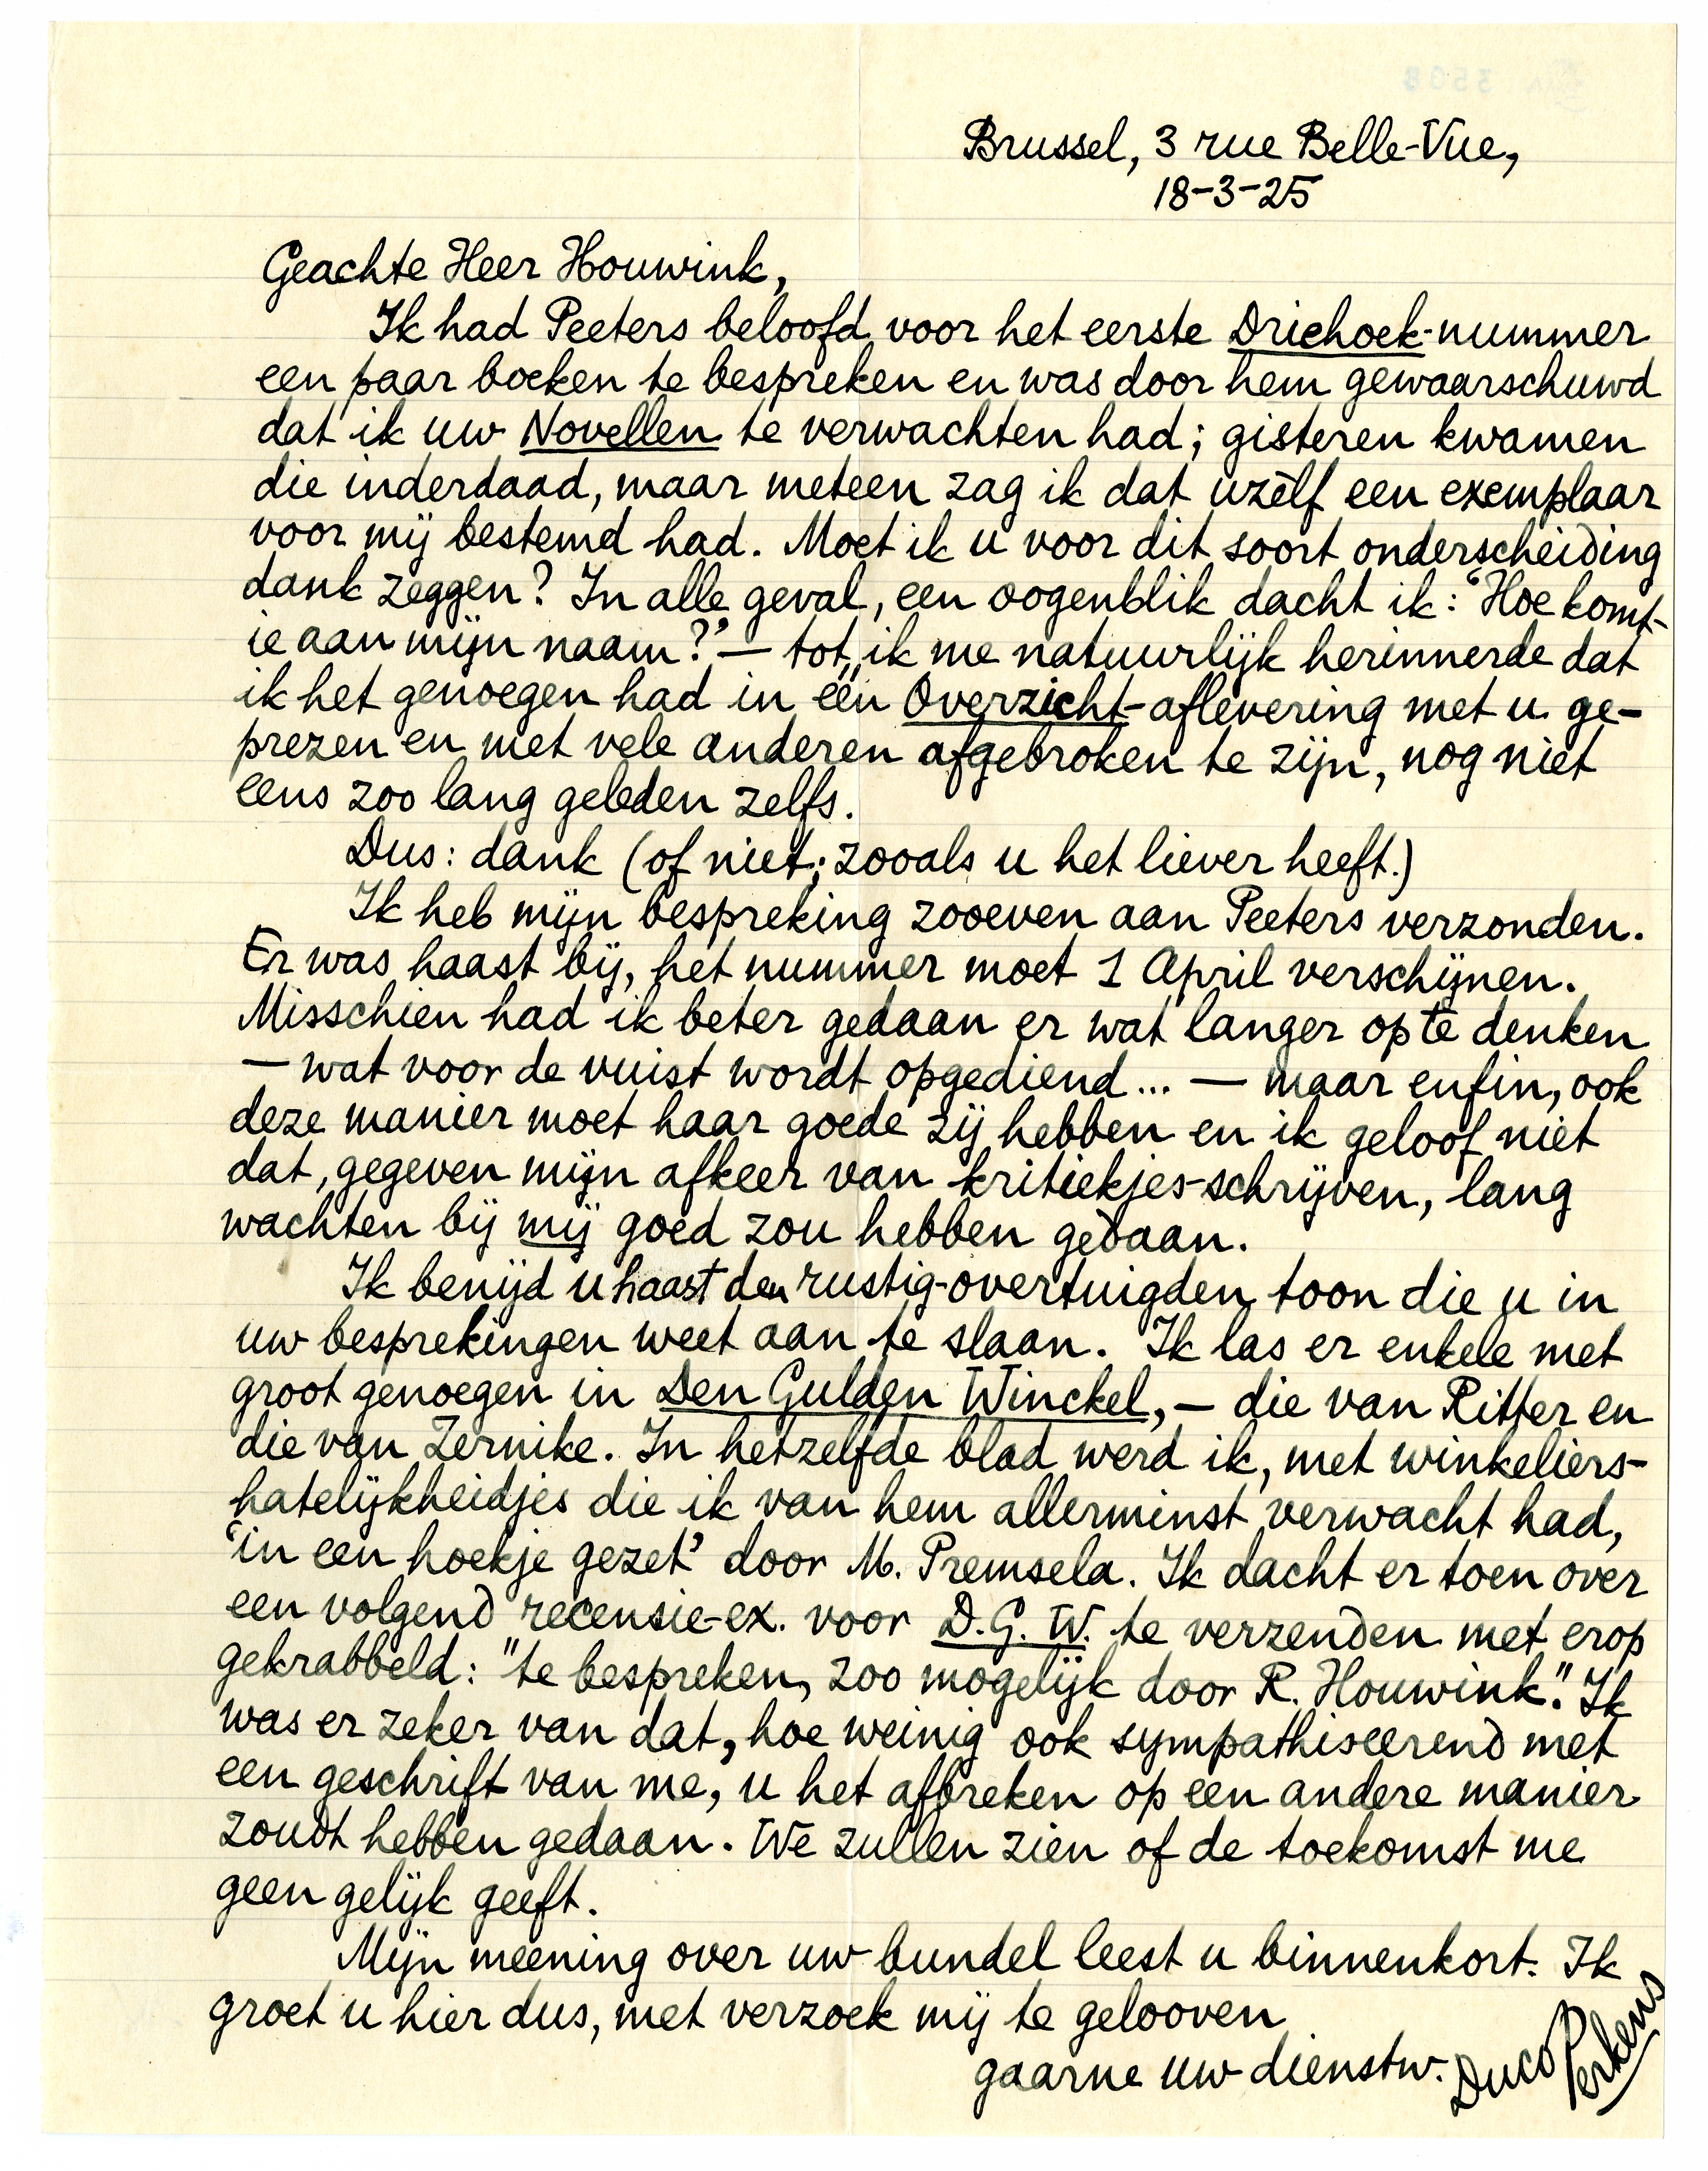 Brussel, 3 rue Belle-Vue,
18-3-25
Geachte Heer Houwink,
Ik had Peeters beloofd voor het eerste Driehoek-nummer
een paar boeken te bespreken en was door hem gewaarschuwd
dat ik uw Novellen te verwachten had; gisteren kwamen
die inderdaad, maar meteen zag ik dat uzèlf een exemplaar
voor mij bestemd had. Moet ik u voor dit soort onderscheiding
dank zeggen? In alle geval, een oogenblik dacht ik: ‘Hoe komt-
ie aan mijn naam?’ — tot ik me natuurlijk herinnerde dat
ik het genoegen had in één Overzicht-aflevering met u ge-
prezen en met vele anderen afgebroken te zijn, nog niet
eens zoo lang geleden zelfs.
Dus: dank (of niet; zooals u het liever heeft.)
Ik heb mijn bespreking zooeven aan Peeters verzonden.
Er was haast bij, het nummer moet 1 April verschijnen.
Misschien had ik beter gedaan er wat langer op te denken
— wat voor de vuist wordt opgediend... — maar enfin, ook
deze manier moet haar goede zij hebben en ik geloof niet
dat, gegeven mijn afkeer van kritiekjes-schrijven, lang
wachten bij mij goed zou hebben gedaan.
Ik benijd u haast den rustig-overtuigden toon die u in
uw besprekingen weet aan te slaan. Ik las er enkele met
groot genoegen in Den Gulden Winckel, — die van Ritter en
die van Zernike. In hetzelfde blad werd ik, met winkeliers-
hatelijkheidjes die ik van hem allerminst verwacht had,
‘in een hoekje gezet’ door M. Premsela. Ik dacht er toen over
een volgend recensie-ex. voor D.G.W. te verzenden met erop
gekrabbeld: "te bespreken, zoo mogelijk door R. Houwink." Ik
was er zeker van dat, hoe weinig ook sympathiseerend met
een geschrift van me, u het afbreken op een andere manier
zoudt hebben gedaan. We zullen zien of de toekomst me
geen gelijk geeft.
Mijn meening over uw bundel leest u binnenkort. Ik
groet u hier dus, met verzoek mij te gelooven
gaarne uw dienstw. Duco Perkens